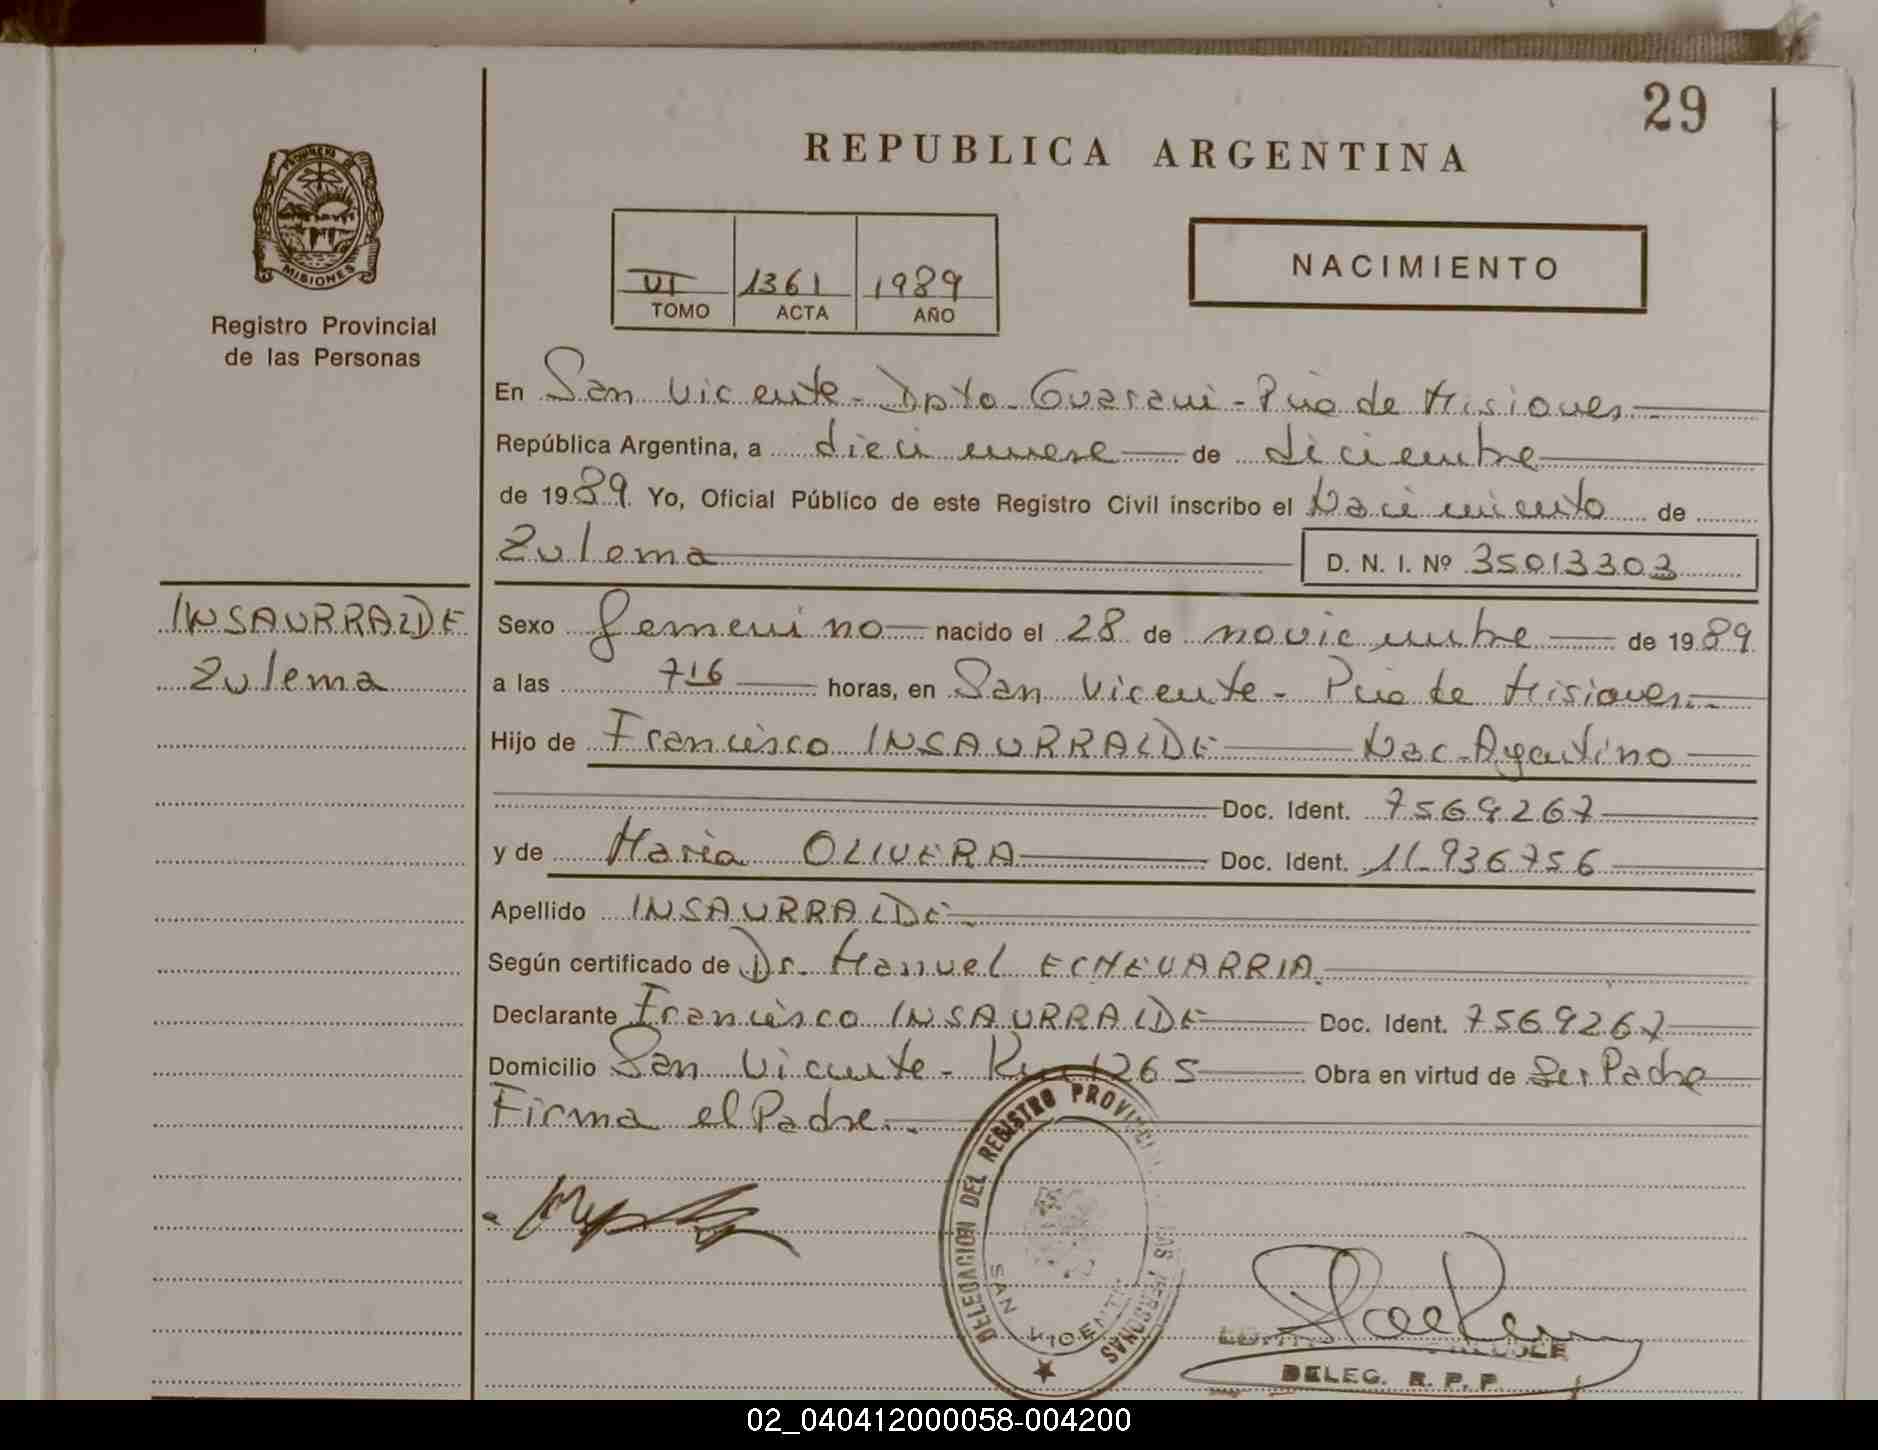 29
REPUBLICA ARGENTINA
PROVINCIA DE MISIONES
Registro Provincial
de las Personas
VI 1361 1989
TOMO ACTA AÑO
NACIMIENTO
En San Vicente - Dpto. Guarani - Pcia de Misiones
República Argentina, a diecinueve de diciembre
de 1989 Yo, Oficial Público de este Registro Civil inscribo el Nacimiento de
Zulema D. N. I. Nº 35013303
INSAURRALDE
Zulema
Sexo femenino nacido el 28 de noviembre de 1989
a las 716 horas, en San Vicente - Pcia de Misiones
Hijo de Francisco INSAURRALDE Nac. Argentino
Doc. Ident. 7569267
y de Maria OLIVERA Doc. Ident. 11.936756
Apellido INSAURRALDE
Según certificado de Dr. Manuel ECHEVARRIA
Declarante Francisco INSAURRALDE Doc. Ident. 7569267
Domicilio San Vicente - Km 1265 Obra en virtud de Ser Padre
Firma el Padre.
DELEGACION DEL REGISTRO PROVINCIAL DE LAS PERSONAS
SAN VICENTE
DELEG. R. P. P.
02_040412000058-004200